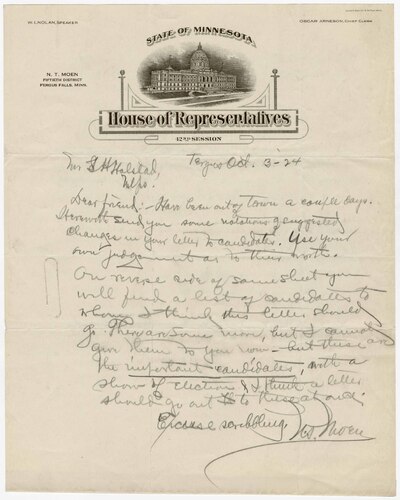 W. I. NOLAN, SPEAKER
OSCAR ARNESON, CHIEF CLERK
STATE OF MINNESOTA
N. T. MOEN
FIFTIETH DISTRICT
FERGUS FALLS, MINN.
House of Representatives
42ND SESSION
Fergus Oct. 3-24
Mr G H Halstad,
Mpls.
Dear friend:- Have been out of town a couple days.
Herewith send you some notations of suggested
changes in your letter to candidates. Use your
own judgement as to their worth.
On reverse side of same sheet you
will find a list of candidates to
whom I think this letter should
go. There are some more, but I cannot
give them to you now - but these are
the important candidates, with a
show of election & I think a letter
should go out to these at once.
Excuse scribbling.
Moen